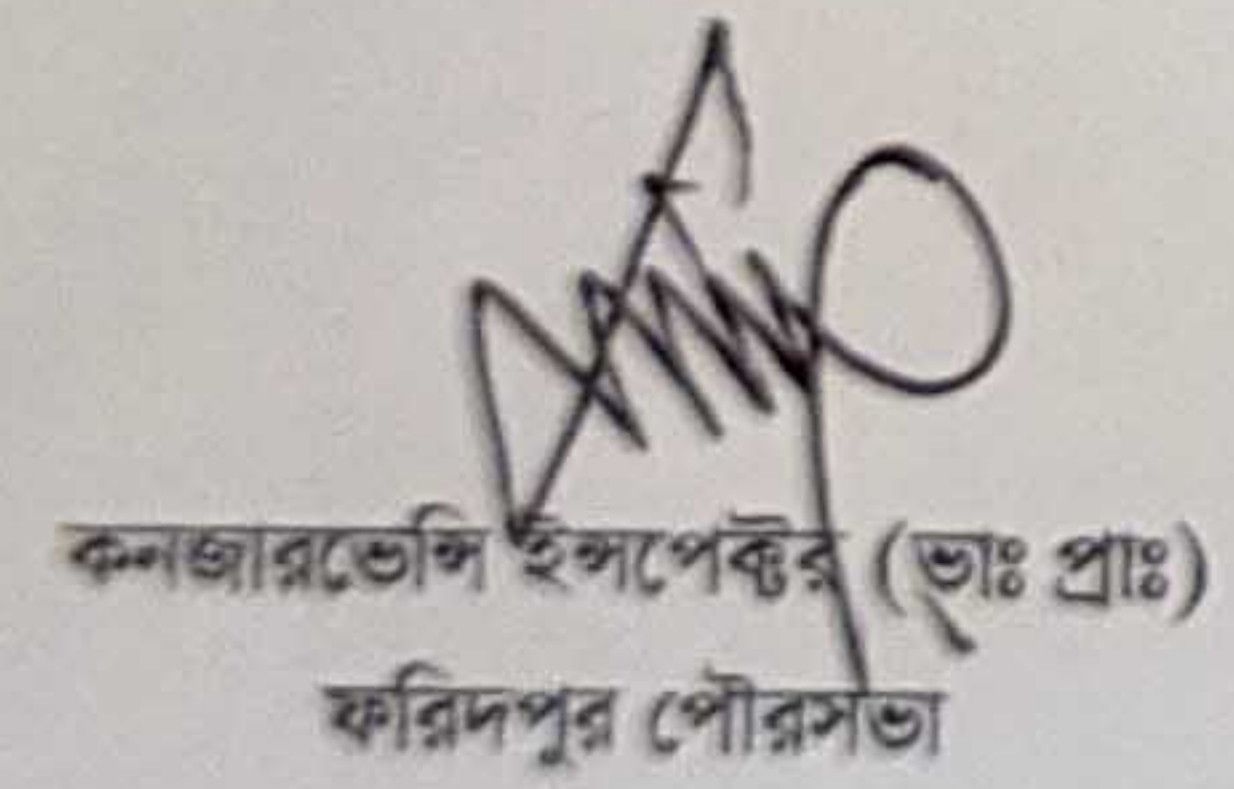 কনজারভেন্সি ইন্সপেক্টর (ভাঃ প্রাঃ)
ফরিদপুর পৌরসভা